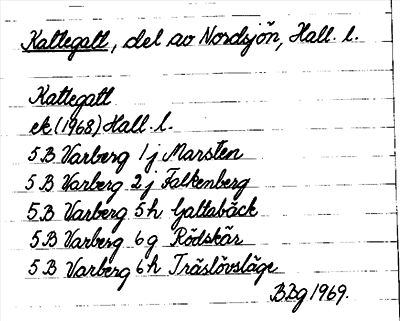 Kattegatt, del av Nordsjön, Hall. l.
Kattegatt
ek (1968) Hall. l.
5 B Varberg 1 j Marsten
5 B Varberg 2 j Falkenberg
5 B Varberg 5 h Gattabäck
5 B Varberg 6 g Rödskär
5 B Varberg 6 h Träslövsläge
BBg 1969.